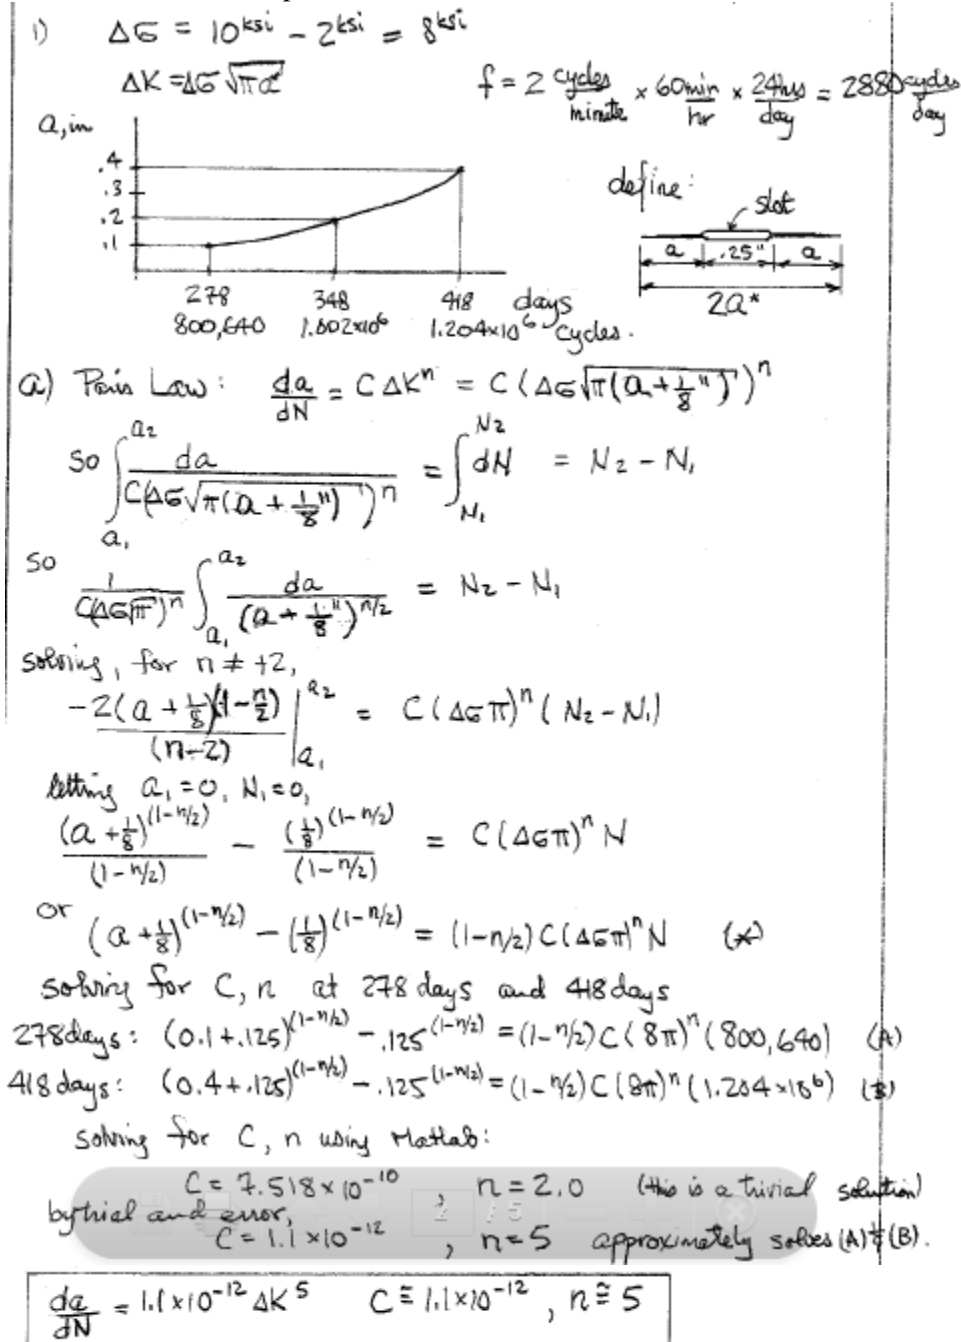 1) Δσ = 10^ksi − 2^ksi = 8^ksi
ΔK = Δσ √πa*
f = 2 cycles/minute × 60 min/hr × 24 hrs/day = 2880 cycles/day
a, in
.4
.3
.2
.1
278 348 418 days
800,640 1.002×10^6 1.204×10^6 cycles.
define:
slot
a .25" a
2a*
a) Paris Law: da/dN = C ΔK^n = C (Δσ √π(a + 1/8") )^n
so ∫_{a₁}^{a₂} da / C(Δσ √π(a + 1/8") )^n = ∫_{N₁}^{N₂} dN = N₂ − N₁
so 1/C(Δσ√π)^n ∫_{a₁}^{a₂} da/(a + 1/8")^{n/2} = N₂ − N₁
solving, for n ≠ +2,
−2(a + 1/8)^(1−n/2) / (n−2) |_{a₁}^{a₂} = C (Δσ π)^n (N₂ − N₁)
letting a₁ = 0, N₁ = 0,
(a + 1/8)^(1−n/2) / (1−n/2) − (1/8)^(1−n/2) / (1−n/2) = C (Δσπ)^n N
or (a + 1/8)^(1−n/2) − (1/8)^(1−n/2) = (1−n/2) C (Δσπ)^n N (*)
solving for C, n at 278 days and 418 days
278 days: (0.1 + .125)^(1−n/2) − .125^(1−n/2) = (1−n/2) C (8π)^n (800,640) (A)
418 days: (0.4 + .125)^(1−n/2) − .125^(1−n/2) = (1−n/2) C (8π)^n (1.204×10^6) (B)
solving for C, n using Matlab:
C = 7.518×10^−10 , n = 2.0 (this is a trivial solution)
2 / 5
by trial and error,
C = 1.1×10^−12 , n = 5 approximately solves (A) & (B).
da/dN = 1.1×10^−12 ΔK^5 C ≅ 1.1×10^−12 , n ≅ 5